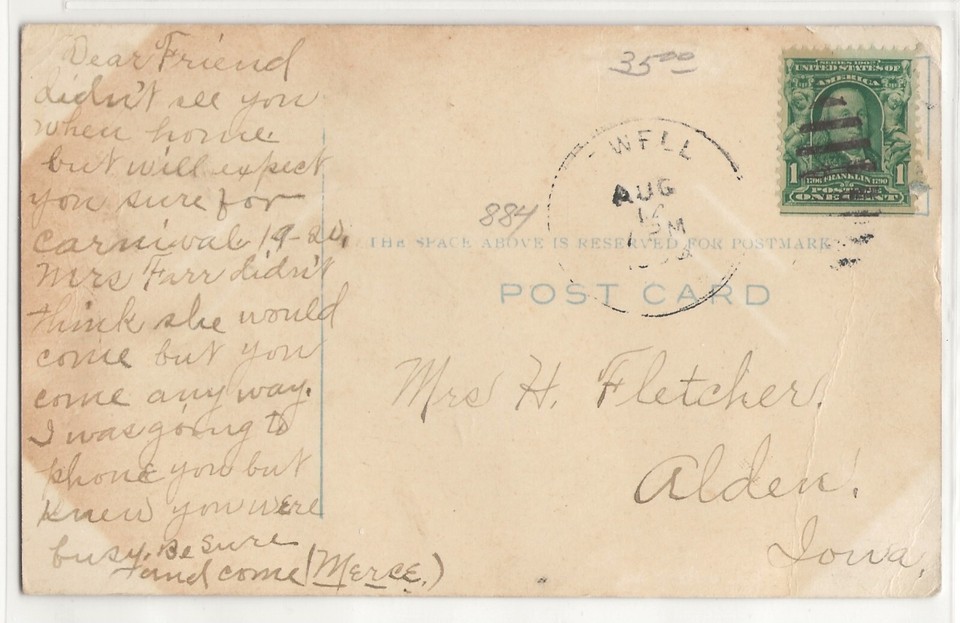 Dear Friend
didn't see you
when home
but will expect
you sure for
carnival 19-20,
Mrs Farr didn't
think she would
come but you
come any way.
I was going to
phone you but
knew you were
busy. Be sure
and come (Merce.)
35 00
884
WELL
AUG
PM
SERIES 1902
UNITED STATES OF
AMERICA
1 1706 FRANKLIN 1790 1
POSTAGE
ONE CENT
THE SPACE ABOVE IS RESERVED FOR POSTMARK
POST CARD
Mrs H. Fletcher.
Alden!
Iowa,